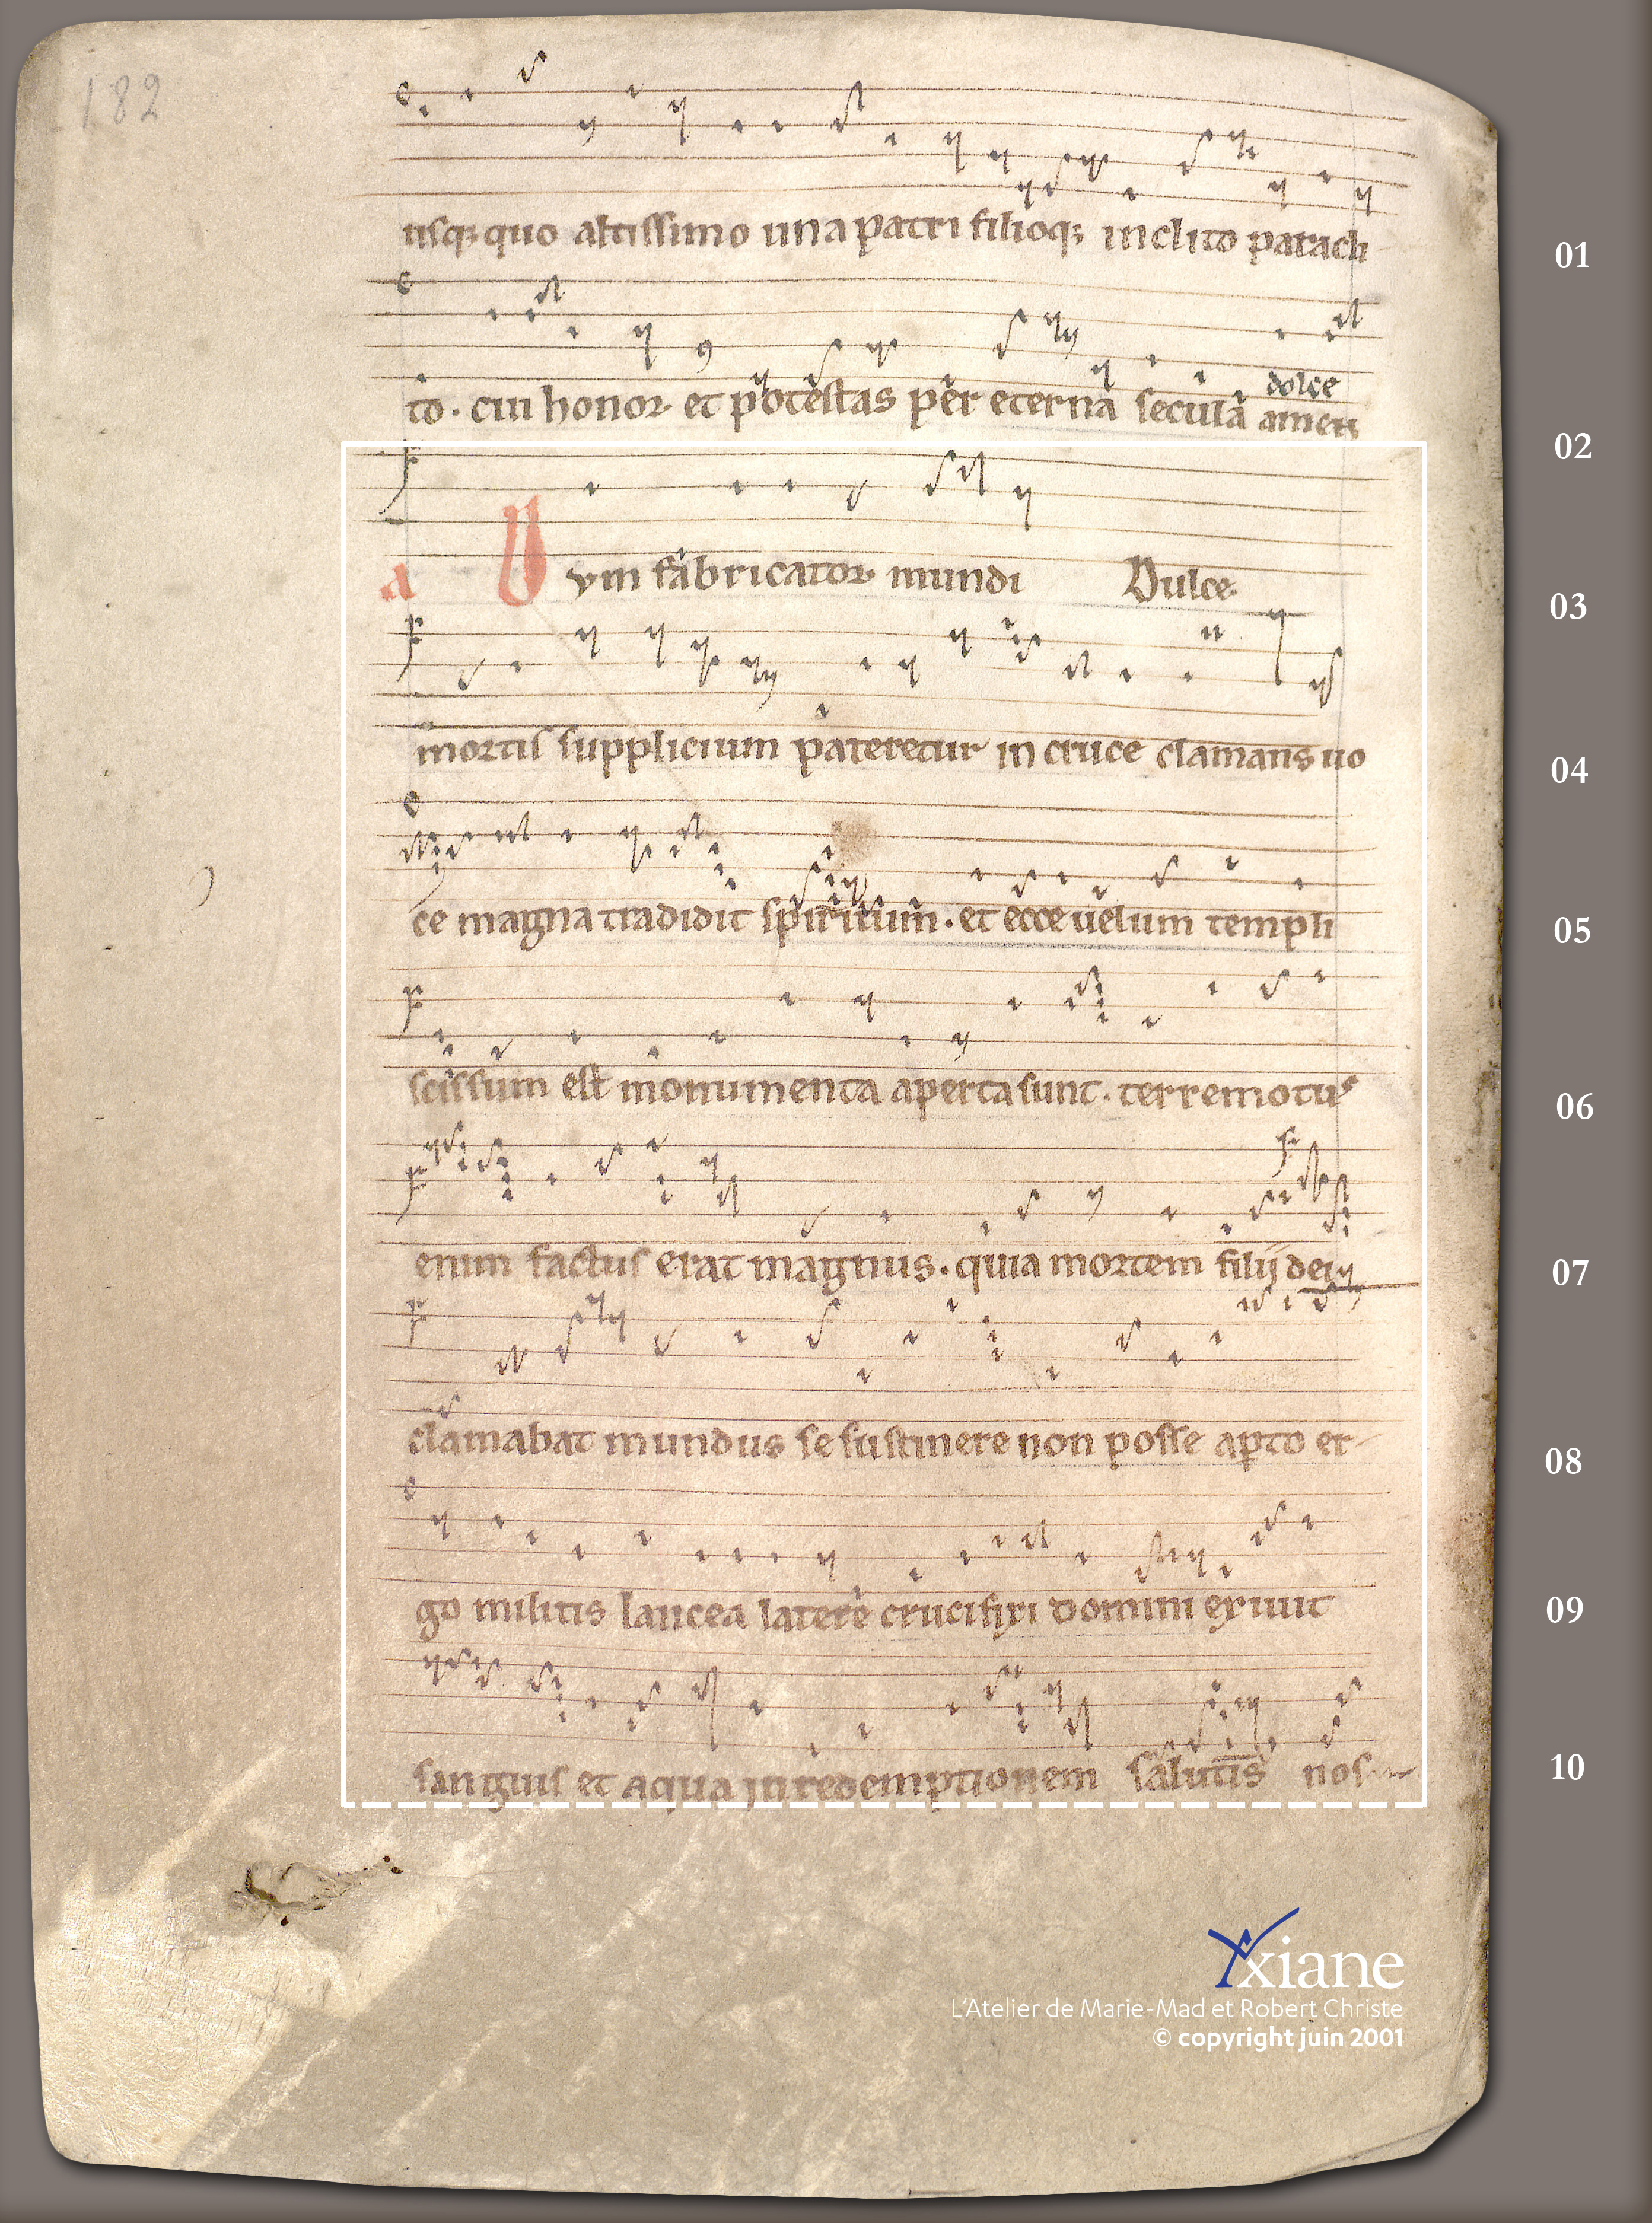 182
usq; quo altissimo una patri filioq; inclito paracli
01
to. cui honor et potestas per eterna secula amen
dolce
02
a Vvm fabricator mundi Dulce
03
mortis supplicium pateretur in cruce clamans uo
04
ce magna tradidit spiritum. et ecce uelum templi
05
scissum est monumenta aperta sunt. terremotus
06
enim factus erat magnus. quia mortem filij dei
07
clamabat mundus se sustinere non posse apto er
08
go militis lancea latere crucifixi domini exiuit
09
sanguis et aqua in redemptionem salutis nos
10
Yxiane
L'Atelier de Marie-Mad et Robert Christe
© copyright juin 2001